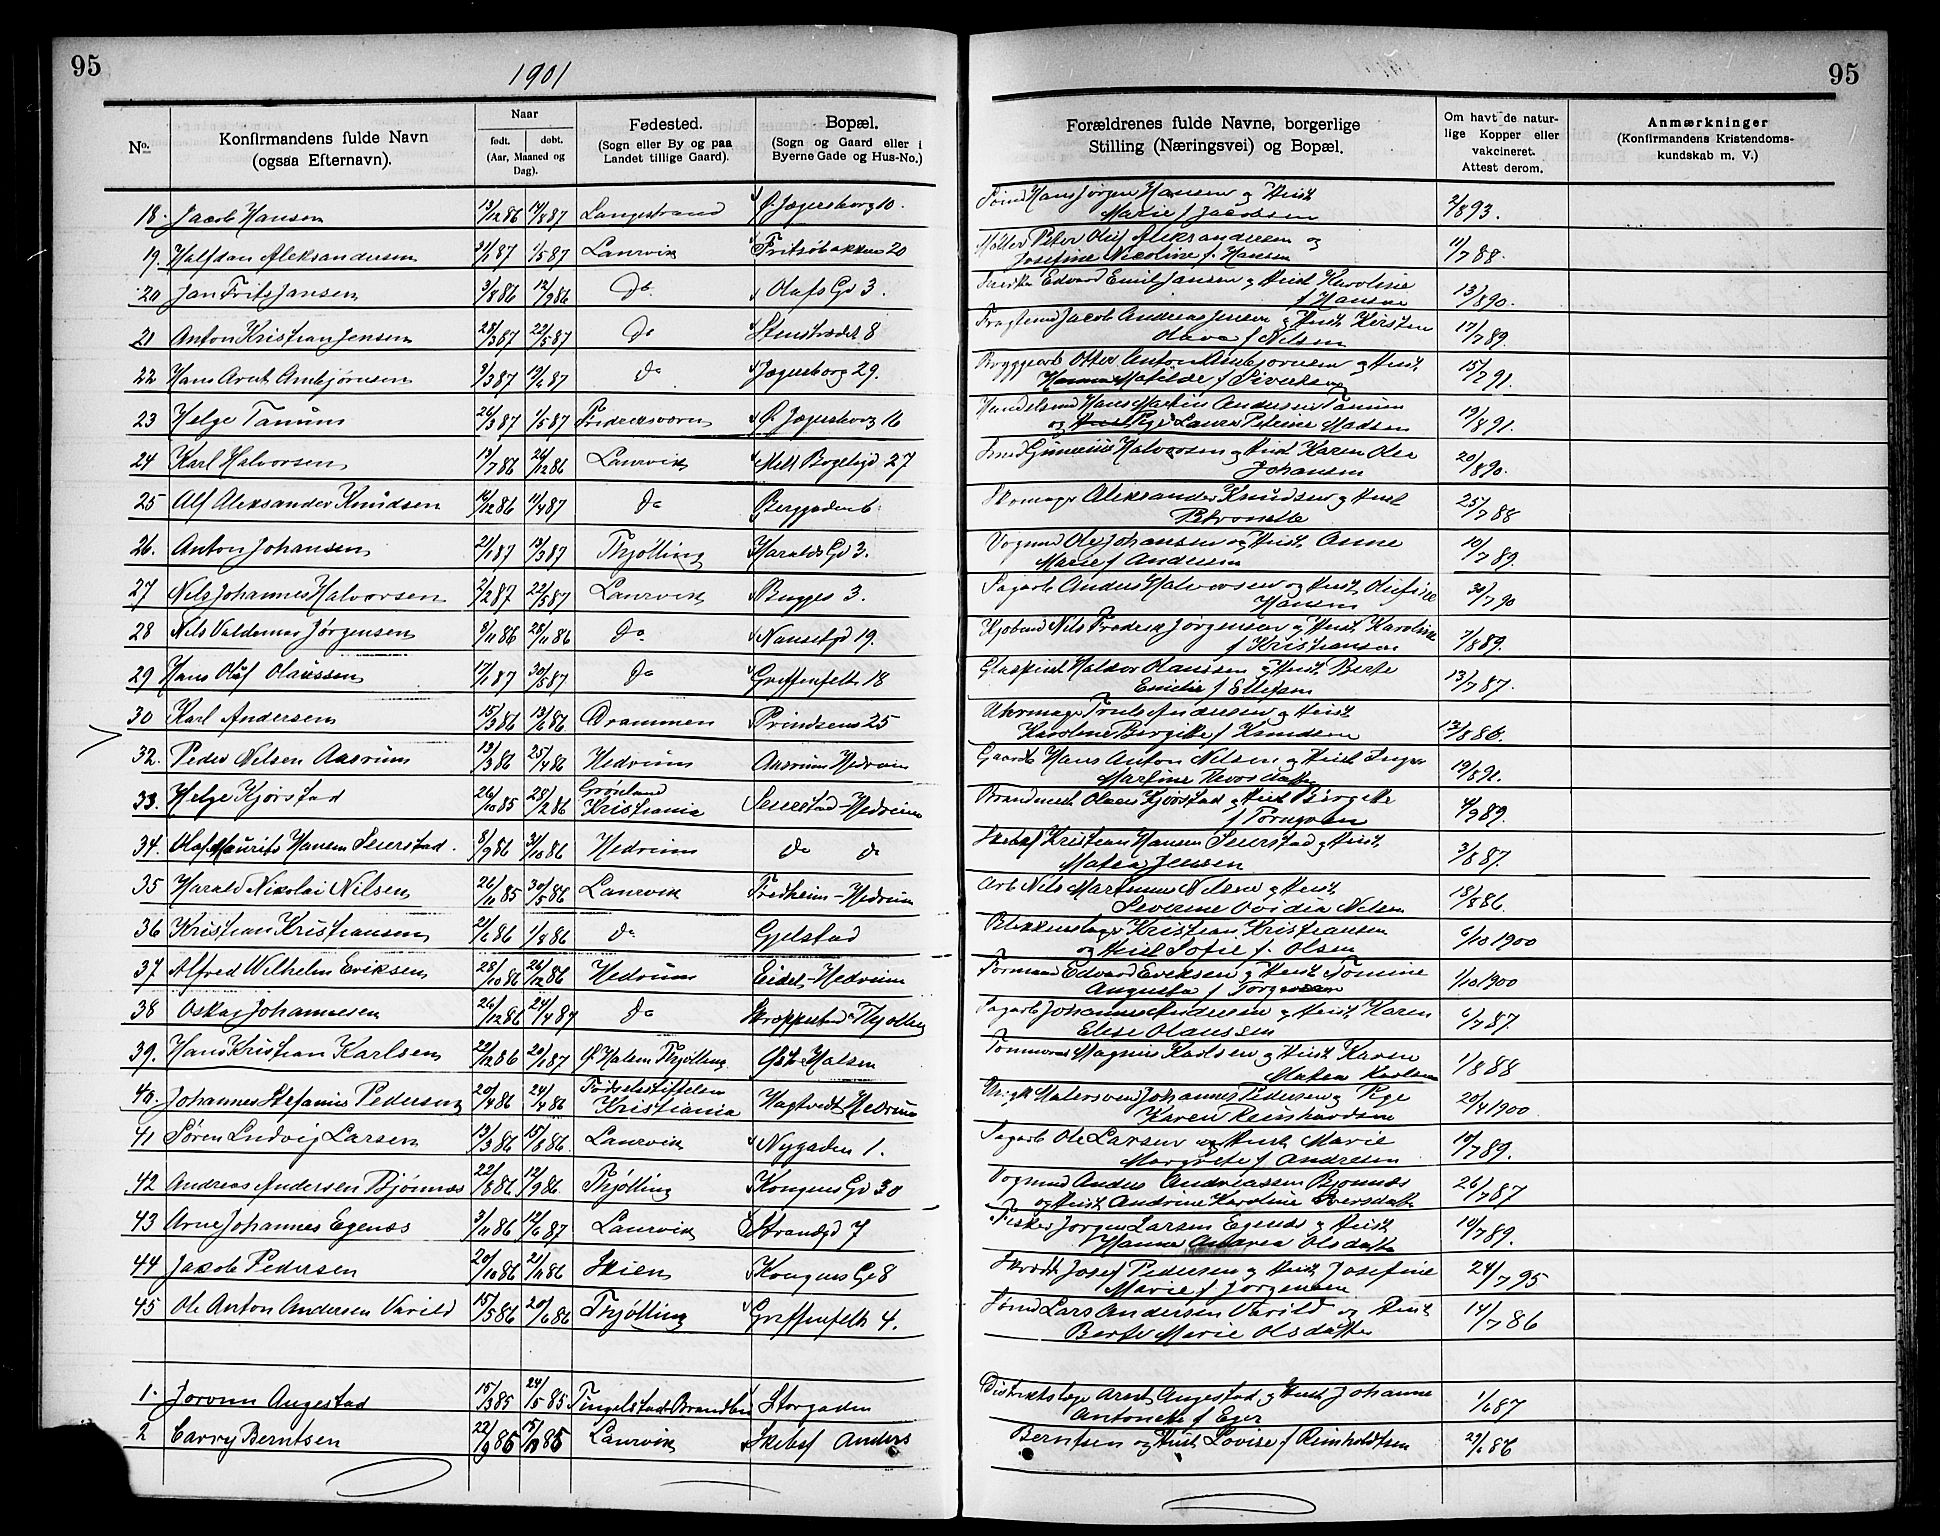 95
1901
95
No.
Konfirmandens fulde Navn
(ogsaa Efternavn).
Naar
født.
døbt.
(Aar, Maaned og Dag).
Fødested.
(Sogn eller By og paa
Landet tillige Gaard).
Bopæl.
(Sogn og Gaard eller i
Byerne Gade og Hus-No.)
Forældrenes fulde Navne, borgerlige
Stilling (Næringsvei) og Bopæl.
Om havt de natur-
lige Kopper eller
vakcineret.
Attest derom.
Anmærkninger
(Konfirmandens Kristendoms-
kundskab m. V.)
18. Jacob Hansen 13/12 86 14/8 87 Langestrand Ø. Jægersborg 10. Hans Jørgen Hansen og Hust 2/8 93.
Marie f Jacobsen
19. Halfdan Aleksandersen 87 1/5 87 Laurvik Fritsøbakken 20 Peter Oluf Aleksandersen og 11/7 88.
Josefine Nicoline f. Hansen
20 Jan Fritz Jansen 3/8 86 12/9 86 Do Olafs Gd 3. Edvard Emil Jansen og Hust Karoline 13/8 90.
f Hansen
21 Anton Kristian Jensen 28/3 87 22/5 87 Do Stenstrædet 8 Jacob Andreas Jensen og Hust Kirsten 17/7 89.
Olava f Nilsen
22 Hans Arnt Arnbjørnsen 9/3 87 19/6 87 Do Jægersborg 29. Bryggearb Otter Anton Arnbjørnsen og Hust 15/7 91.
Matilde f Sivertsen
23 Helge Tanum 26/3 87 1/5 87 Fredriksværn Ø. Jægersborg 16 Handelsmd Hans Martin Andersen Tanum 19/8 91.
og Pige Laura Petrine Madsen
24 Karl Halvorsen 13/7 86 26/12 86 Laurvik 27 Gunerius Halvorsen og Hust Karen Olea 20/8 90.
Johansen
25 Alf Aleksander Knudsen 86 11/4 87 Do Berggaden 6 Skomager Aleksander Knudsen og Hust 25/7 88
Petronelle
26. Anton Johansen 21/1 87 13/3 87 Thjølling Haralds Gd 3. Vognmd Ole Johansen og Hust Anne 10/7 89.
Marie f Andersen
27 Nils Johannes Halvorsen 2/2 87 22/5 87 Laurvik Bugges 3. Sagarb Anders Halvorsen og Hust Olufine 30/7 90
Hansen
28 Nils Valdemar Jørgensen 8/11 86 28/11 86 Do Nansetgd 19. Kjøbmd Nils Fredrik Jørgensen og Hust Karoline 7/8 89.
f Kristiansen
29 Hans Oluf Olaussen 17/1 87 30/5 87 Do Griffenfelts 18 Halvor Olaussen og Hust Berte 13/7 87.
Emilie f Ellefsen
30 Karl Andersen 15/3 86 13/6 86 Drammen Prindsens 25 Uhrmager Andersen og Hust
Karoline Birgitte f Knudsen 13/8 86.
32. Peder Nilsen Aasrum 19/3 86 25/4 86 Hedrum Aasrum Hedrum Gaardb Hans Anton Nilsen og Hust Inger 19/8 91.
Martine
33. Helge Kjørstad 26/10 85 28/2 86 Grønland
Kristiania Seierstad-Hedrum Kjørstad og Hust Birgitte 9 89.
f Torngren
34. Olaf Maurits Hansen Seierstad. 8/9 86 3/10 86 Hedrum Do Do Kristian Hansen Seierstad og Hust 3/8 87.
Matea Jensen
35 Harald Nikolai Nilsen 26/11 85 30/5 86 Laurvik Fredheim-Hedrum Arb Nils Martinius Nilsen og Hust 18/8 86.
Severine Ovidia Nilsen
36 Kristian Kristiansen 21/6 86 1/8 86 Do Gjelstad Blikkenslager Kristian Kristiansen 6/10 1900
og Hust Sofie f. Olsen
37. Alfred Wilhelm Eriksen 28/10 86 26/12 86 Hedrum Eidet-Hedrum Formand Edvard Eriksen og Hust Tomine 1/10 1900
Augusta f Torgersen
38 Oskar Johannesen 26/12 86 24/4 87 Do Thjølling Sagarb Johannes Andresen og Hust Karen 6/7 87.
Elise Olaussen
39. Hans Kristian Karlsen 22/12 86 20/1 87 Ø Halsen Thjølling Østre Halsen Magnus Karlsen og Hust Karen 1/8 88
Matea Karlsen
40. Johannes Stefanius Pedersen 20/4 86 24/4 86 Fødselsstiftelsen
Kristiania Hagtvedt Hedrum Johannes Pedersen og Pige 20/4 1900.
Karen Reinhardsen
41 Søren Ludvig Larsen 19/3 86 15/8 86. Laurvik Nygaden 1. Sagarb Ole Larsen og Hust Marie 10/7 89.
Margrete f Andresen
42 Andreas Andersen Bjønnes 22/8 86 12/9 86 Thjølling Kongens Gd 30 Vognmd Anders Andreassen Bjønnes 26/7 87
og Hust Andrine Karoline Iversdatter
43 Arne Johannes Egenes 3/11 86 12/6 87 Laurvik Strandgd 7 Fisker Jørgen Larsen Egenes og Hust 10/7 89.
Hanne Andrea Olsdatter
44 Jakob Pedersen 20/10 86 21/11 86 Skien Kongens Gd 8 Josef Pedersen og Hust Josefine 24/7 95
Marie f Jørgensen
45 Ole Anton Andersen Varild 15/5 86 20/6 86 Thjølling Griffenfelts 4. Lars Andersen Varild og Hust 14/7 86
Berte Marie Olsdatter
1. Jorunn Augestad 15/3 85 24/5 85 Tingelstad Brandbu Storgaden Distriktslæge Arnt Augestad, og Hust Johanne 1/6 87
Antonette f Eger
2 Carry Berntsen 22/9 85 15/11 85 Laurvik Skibsf Anders
Berntsen og Hust Lovise f Reinholdtsen 29/6 86